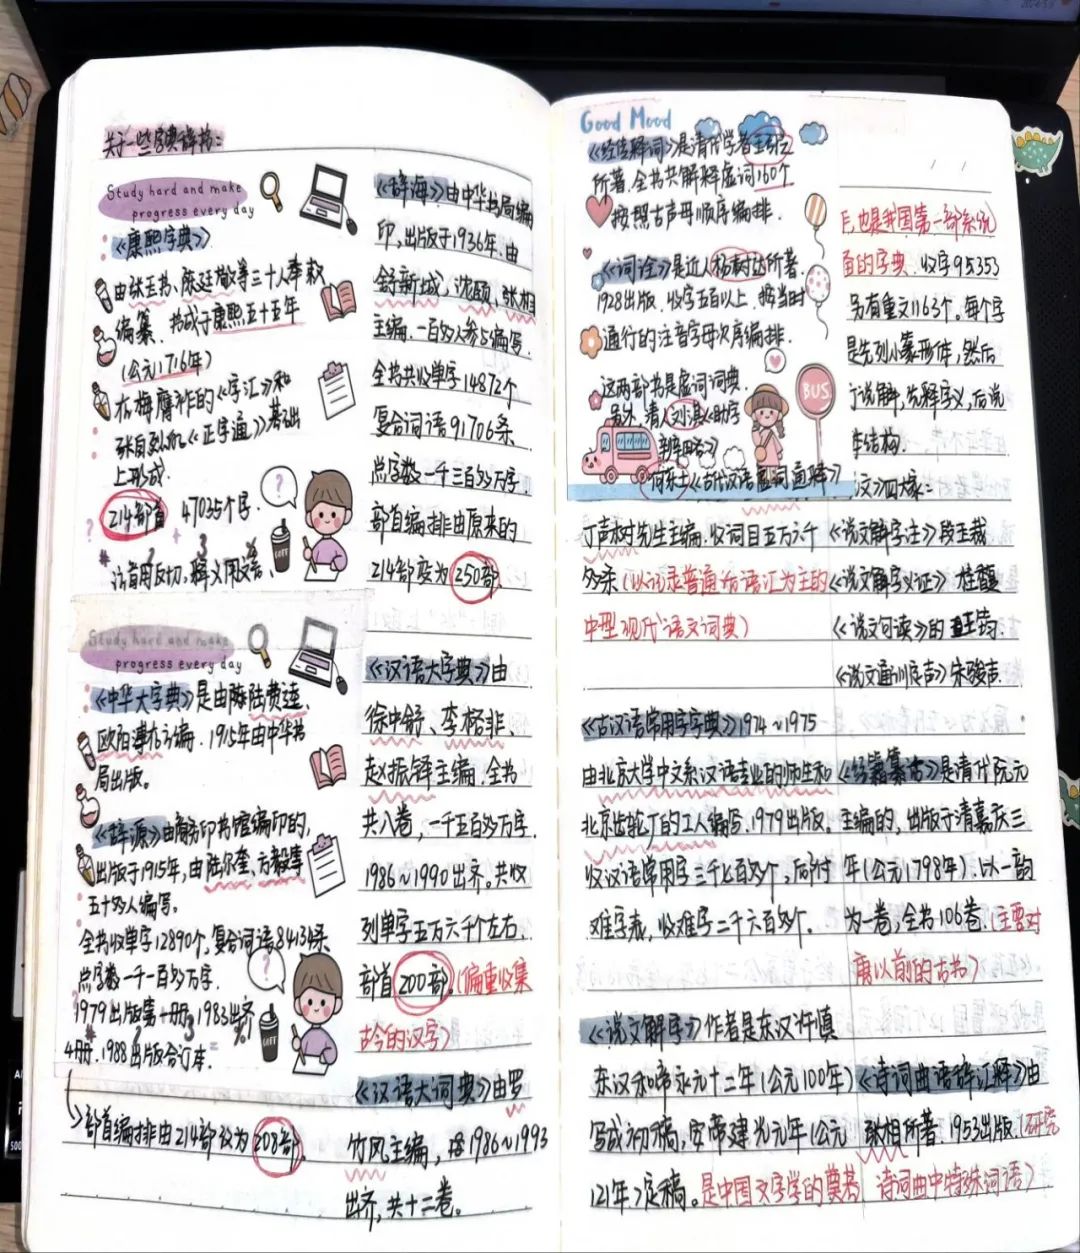 关于一些字典辞书:
Study hard and make
progress every day
《康熙字典》
由张玉书、陈廷敬等三十人奉敕
编纂.书成于康熙五十五年
(公元1716年)
在梅膺祚的《字汇》和
张自烈的《正字通》基础
上形成.
214部首 47035个字.
注音用反切.释义用文言、
Study hard and make
progress every day
《中华大字典》是由陆费逵、
欧阳溥存主编.1915年由中华书
局出版。
《辞源》由商务印书馆编印的,
出版于1915年,由陆尔奎、方毅等
五十多人编写。
全书收单字12890个,复合词语84134条
总字数一千一百多万字.
1979出版第一册,1983出齐
4册.1988出版合订本.
部首编排由214部改为208部.
《辞海》由中华书局编
印,出版于1936年.由
舒新城,沈颐、张相
主编.一百多人参与编写.
全书共收单字14872个
复合词语91706条
总字数一千三百多万字.
部首编排由原来的
214部变为250部
《汉语大字典》由
徐中舒、李格非、
赵振铎主编.全书
共八卷,一千五百多万字.
1986~1990出齐。共收
列单字五万六千个左右.
部首200部.(偏重收集
古今的汉字)
《汉语大词典》由罗
竹风主编,1986~1993
出齐,共十二卷。
Good Mood
《经传释词》是清代学者王引之
所著.全书共解释虚词160个
按照古声母顺序编排.
《词诠》是近人杨树达所著.
1928出版.收字五百以上.按当时
通行的注音字母次序编排.
这两部书是虚词词典.
另外,清人刘淇《助字
辨略》
何乐士《古代汉语虚词通释》
BUS
丁声树先生主编.收词目五万六千
多条(以记录普通话语汇为主的
中型现代语文词典)
《古汉语常用字字典》1974~1975
由北京大学中文系汉语专业的师生和
北京齿轮厂的工人编写.1979出版。
收汉语常用字三千七百多个,后附
难字表,收难字二千六百多个.
《说文解字》作者是东汉许慎
东汉和帝永元十二年(公元100年)
写成初稿,安帝建光元年(公元
121年)定稿。是中国文字学的奠基
,也是我国第一部系统
的字典.收字95353
另有重文1163个。每个字
是先列小篆形体,然后
说解,先释字义,后说
结构.
《说文》四大家:
《说文解字注》段玉裁
《说文解字义证》桂馥
《说文句读》的王筠.
《说文通训定声》朱骏声.
《经籍籑诂》是清代阮元
主编的,出版于清嘉庆三
年(公元1798年).以一韵
为一卷,全书106卷.(主要对
唐以前的古书)
《诗词曲语辞汇释》由
张相所著.1953出版.(研究
诗词曲中特殊词语)